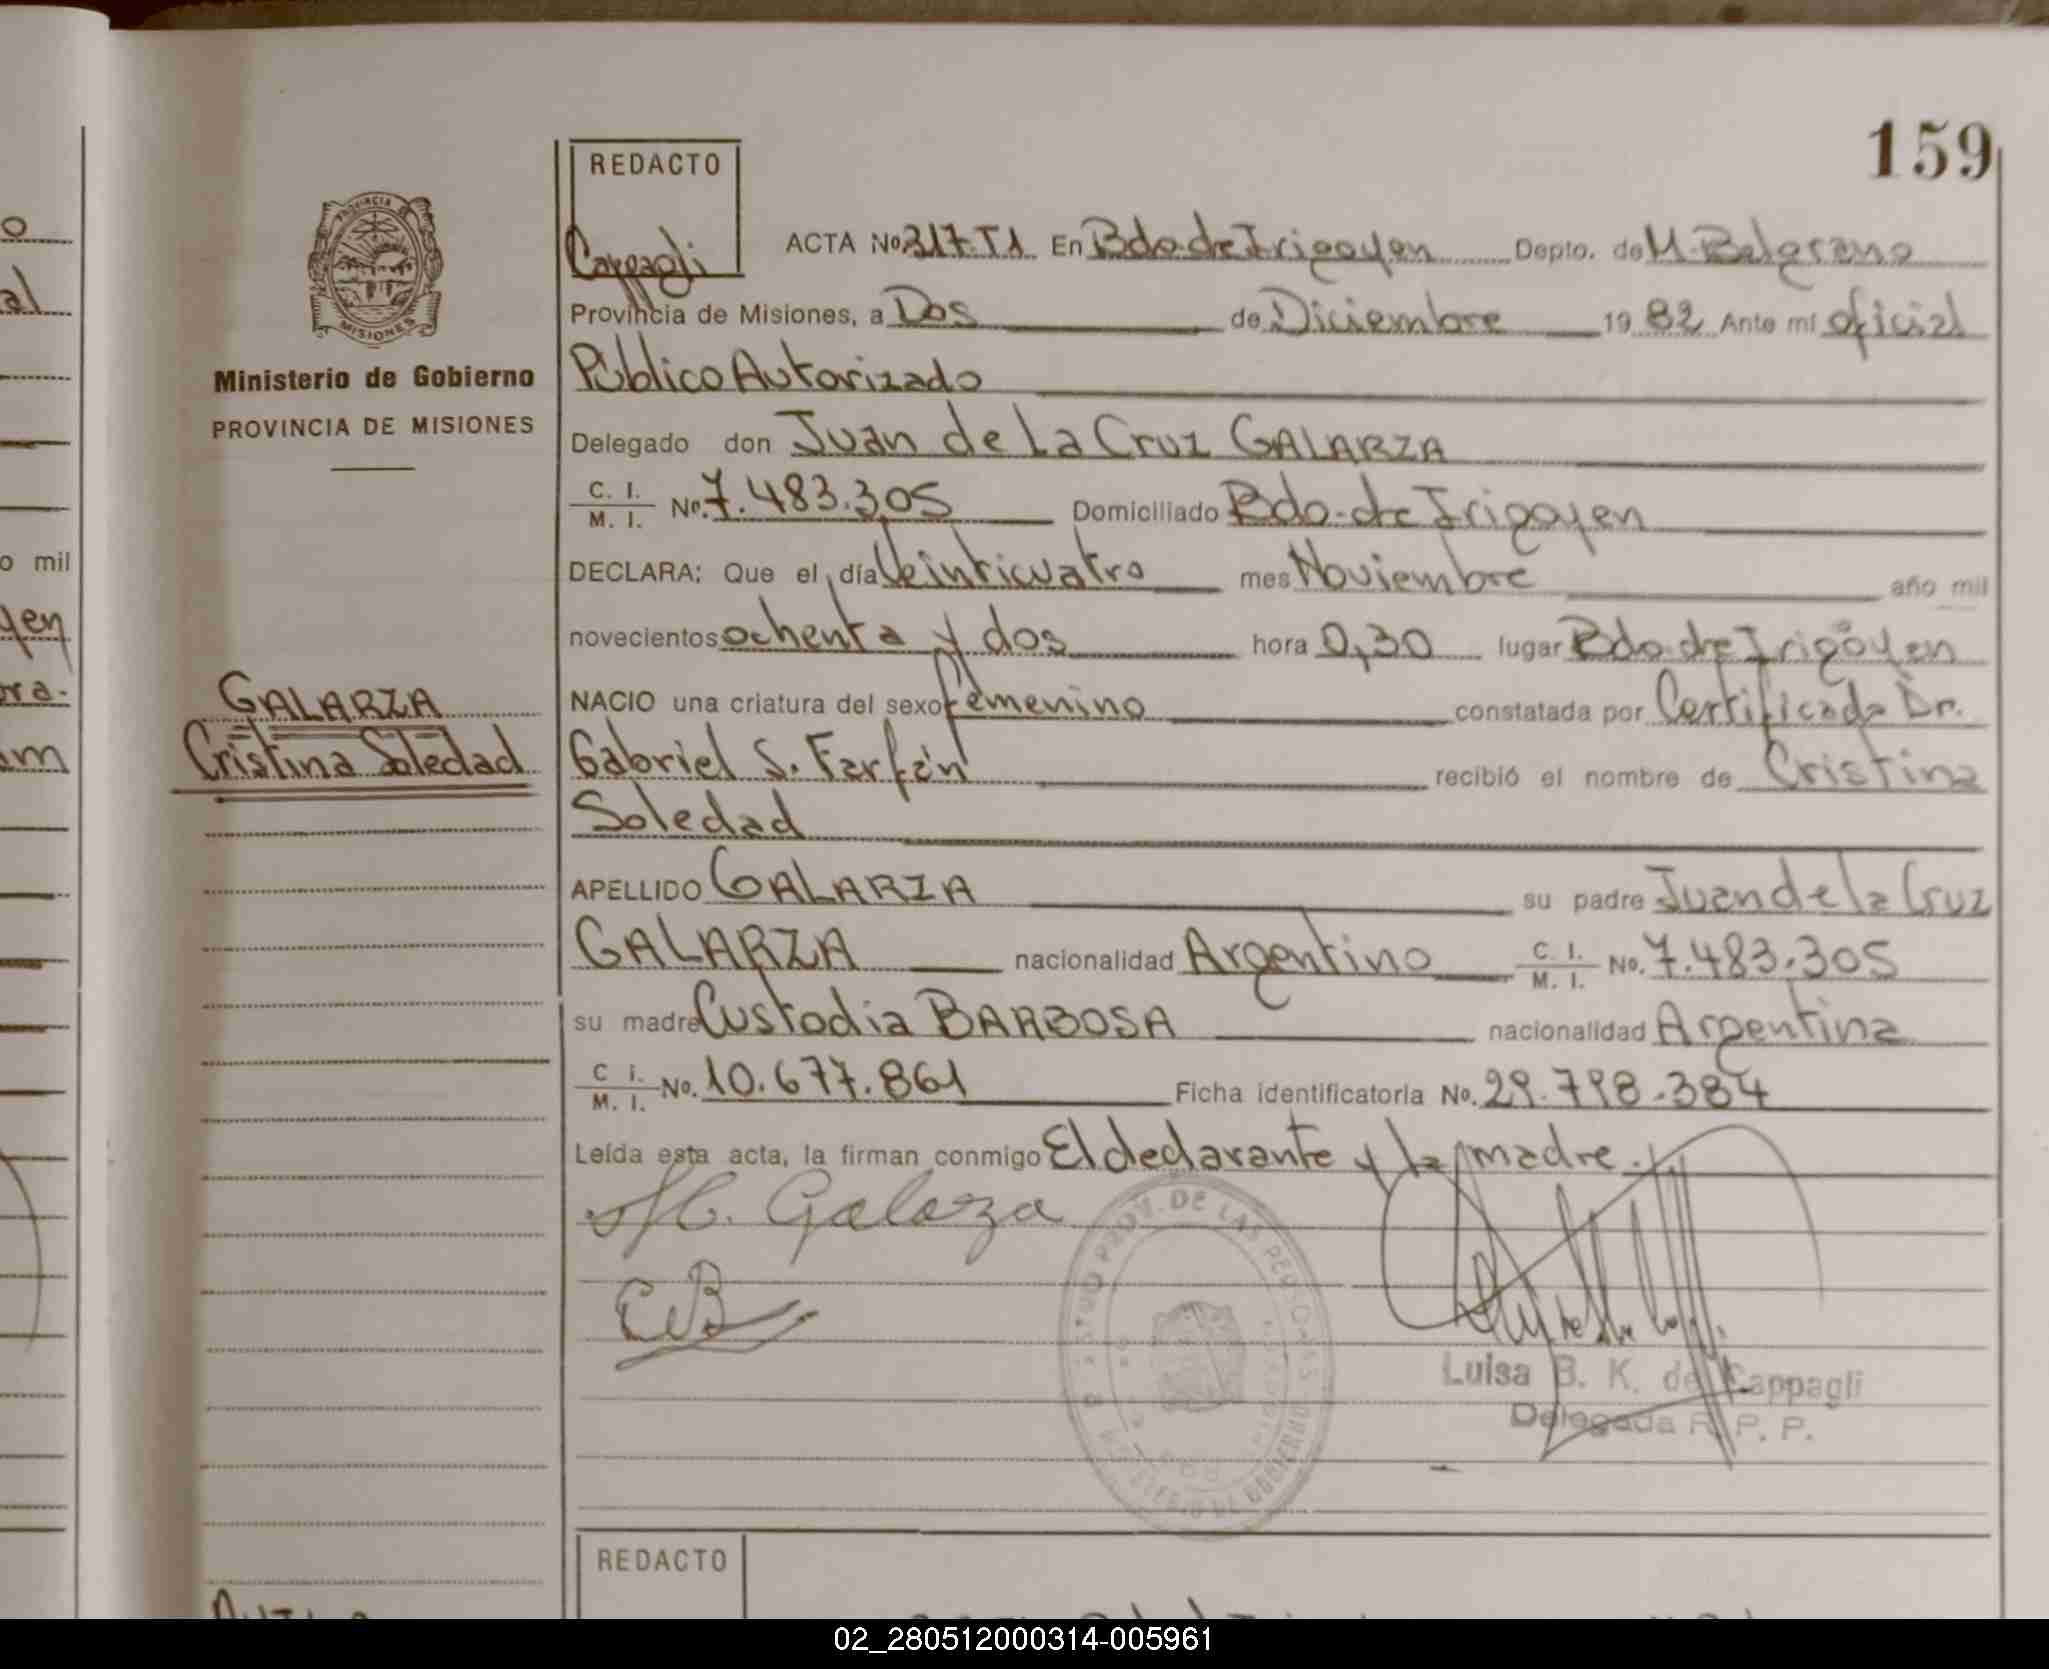 159
REDACTO
Cappagli
ACTA No 317. T1 En Bdo. de Irigoyen Depto. de M. Belgrano
Provincia de Misiones, a Dos de Diciembre 19 82 Ante mi oficial
Público Autorizado
Delegado don Juan de La Cruz GALARZA
C. I. M. I. No. 7.483.305 Domiciliado Bdo. de Irigoyen
DECLARA: Que el día Veinticuatro mes Noviembre año mil
novecientos ochenta y dos hora 0,30 lugar Bdo. de Irigoyen
NACIO una criatura del sexo femenino constatada por Certificado Dr.
Gabriel S. Farfán recibió el nombre de Cristina
Soledad
APELLIDO GALARZA su padre Juan de la Cruz
GALARZA nacionalidad Argentino C. I. M. I. No. 7.483.305
su madre Custodia BARBOSA nacionalidad Argentina
C. I. M. I. No. 10.677.861 Ficha identificatoria No. 29.798.384
Leída esta acta, la firman conmigo El declarante y la madre.
Galaza
CB
PROV. DE LAS PERSONAS
Luisa B. K. de Cappagli
Delegada R. P. P.
PROVINCIA DE
MISIONES
Ministerio de Gobierno
PROVINCIA DE MISIONES
GALARZA
Cristina Soledad
REDACTO
o
al
o mil
yen
ra.
am
02_280512000314-005961